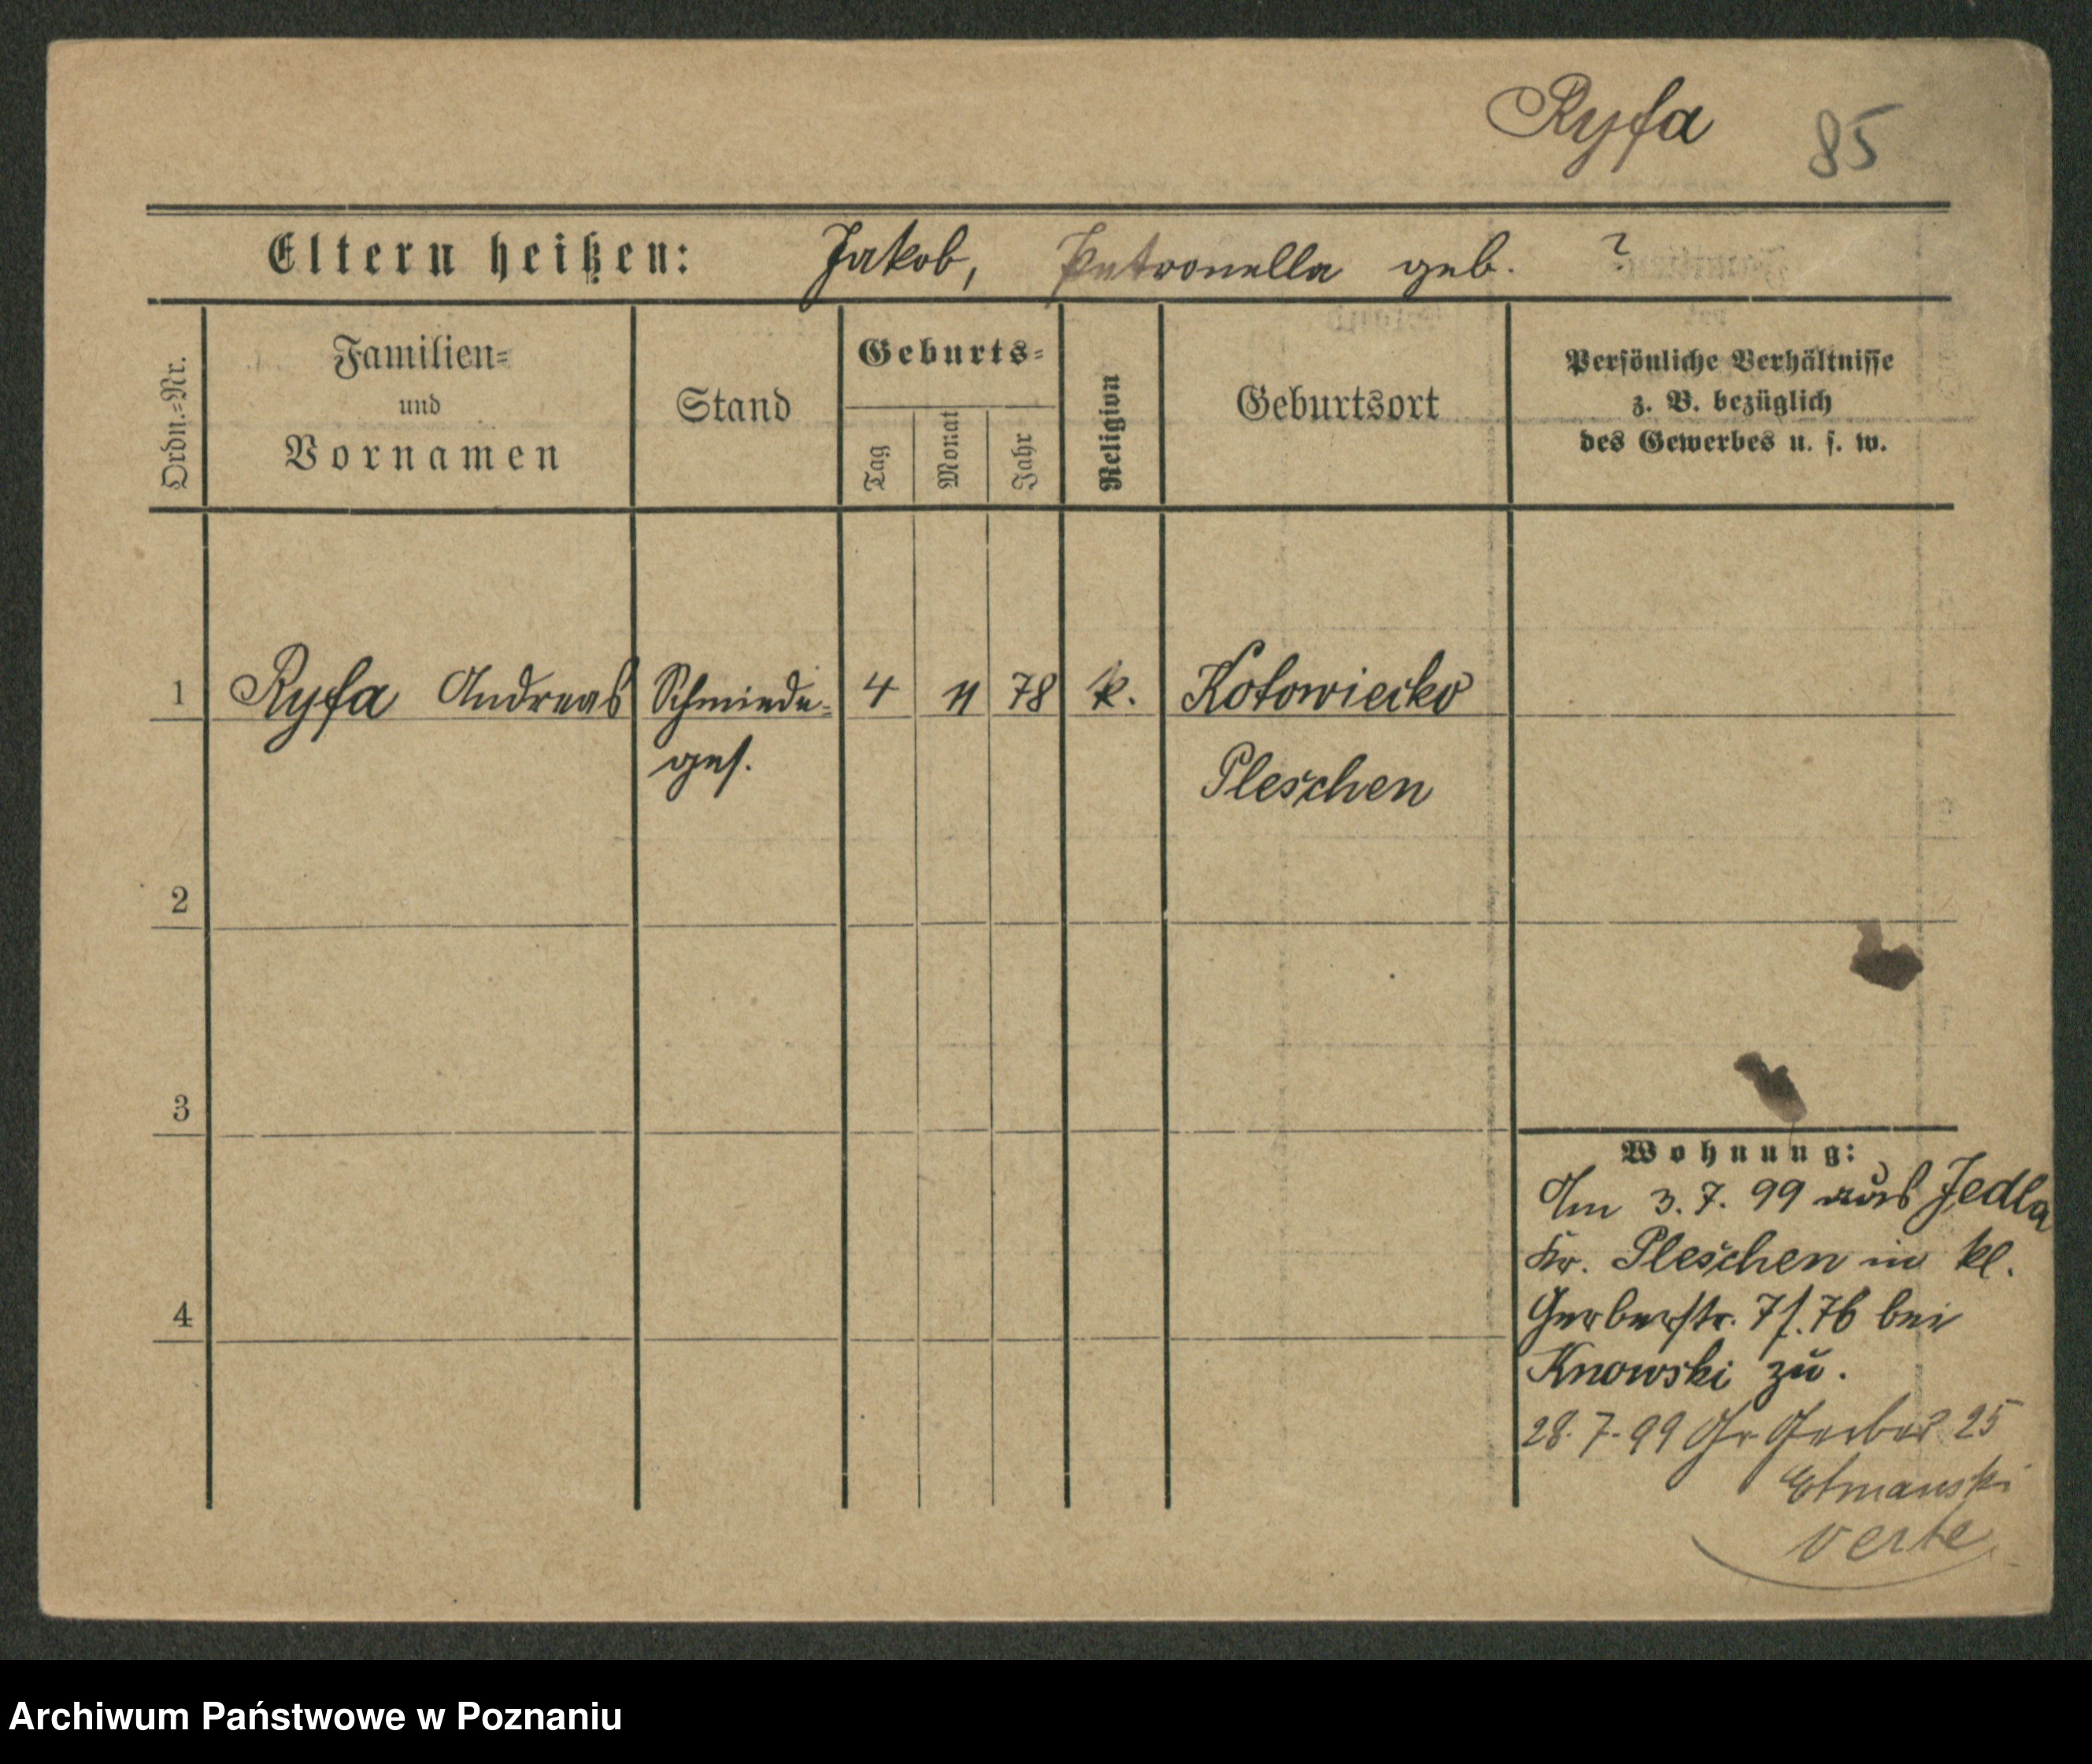 Ryfa 85
Eltern heißen: Jakob, Petronella geb. ?
Ordn.=Nr.
Familien=
und
Vornamen
Stand
Geburts=
Tag
Monat
Jahr
Religion
Geburtsort
Persönliche Verhältnisse
z. B. bezüglich
des Gewerbes u. s. w.
1 Ryfa Andreas Schmiede= 4 11 78 k. Kotowiecko
ges. Pleschen
2
3
4
Wohnung:
Am 3. 7. 99 aus Jedla
Kr. Pleschen in kl.
Gerberstr. 7/. 76 bei
Knowski zu.
28. 7. 99 Gr. Gerber 25
Etmanski
verte
Archiwum Państwowe w Poznaniu